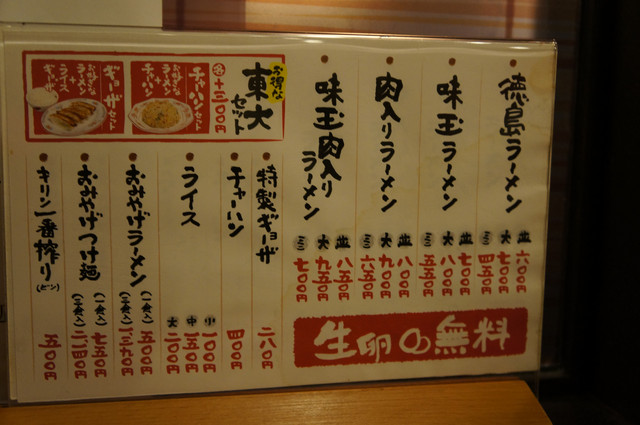 徳島ラーメン
並 六〇〇円
大 七〇〇円
ミニ 四五〇円
味玉ラーメン
並 七〇〇円
大 八〇〇円
ミニ 五五〇円
肉入りラーメン
並 八〇〇円
大 九〇〇円
ミニ 六五〇円
味玉肉入りラーメン
並 八五〇円
大 九五〇円
ミニ 七〇〇円
生卵の無料
お得な
東大セット
各+三〇〇円
チャーハンセット
お好きなラーメン
+
チャーハン
ギョーザセット
お好きなラーメン
+
ライス
+
ギョーザ
特製ギョーザ 二八〇円
チャーハン 四〇〇円
ライス
小 一〇〇円
中 一五〇円
大 二〇〇円
おみやげラーメン
(一食入) 五〇〇円
(三食入) 一、三九〇円
おみやげつけ麺
(一食入) 七五〇円
(三食入) 二、一四〇円
キリン一番搾り(ビン) 五〇〇円